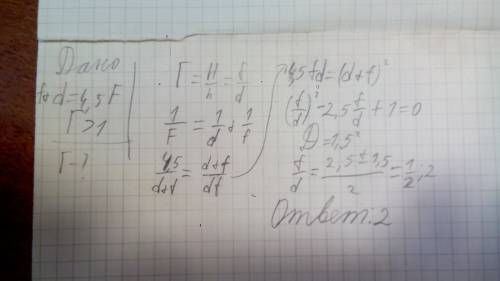 Дано
f+d=4,5F
Г>1
Г-?
Г=H/h=f/d
1/F=1/d+1/f
4,5/(d+f)=(d+f)/(df)
4,5fd=(d+f)²
(f/d)²-2,5f/d+1=0
D=1,5²
f/d=(2,5±1,5)/2=1/2;2
Ответ:2